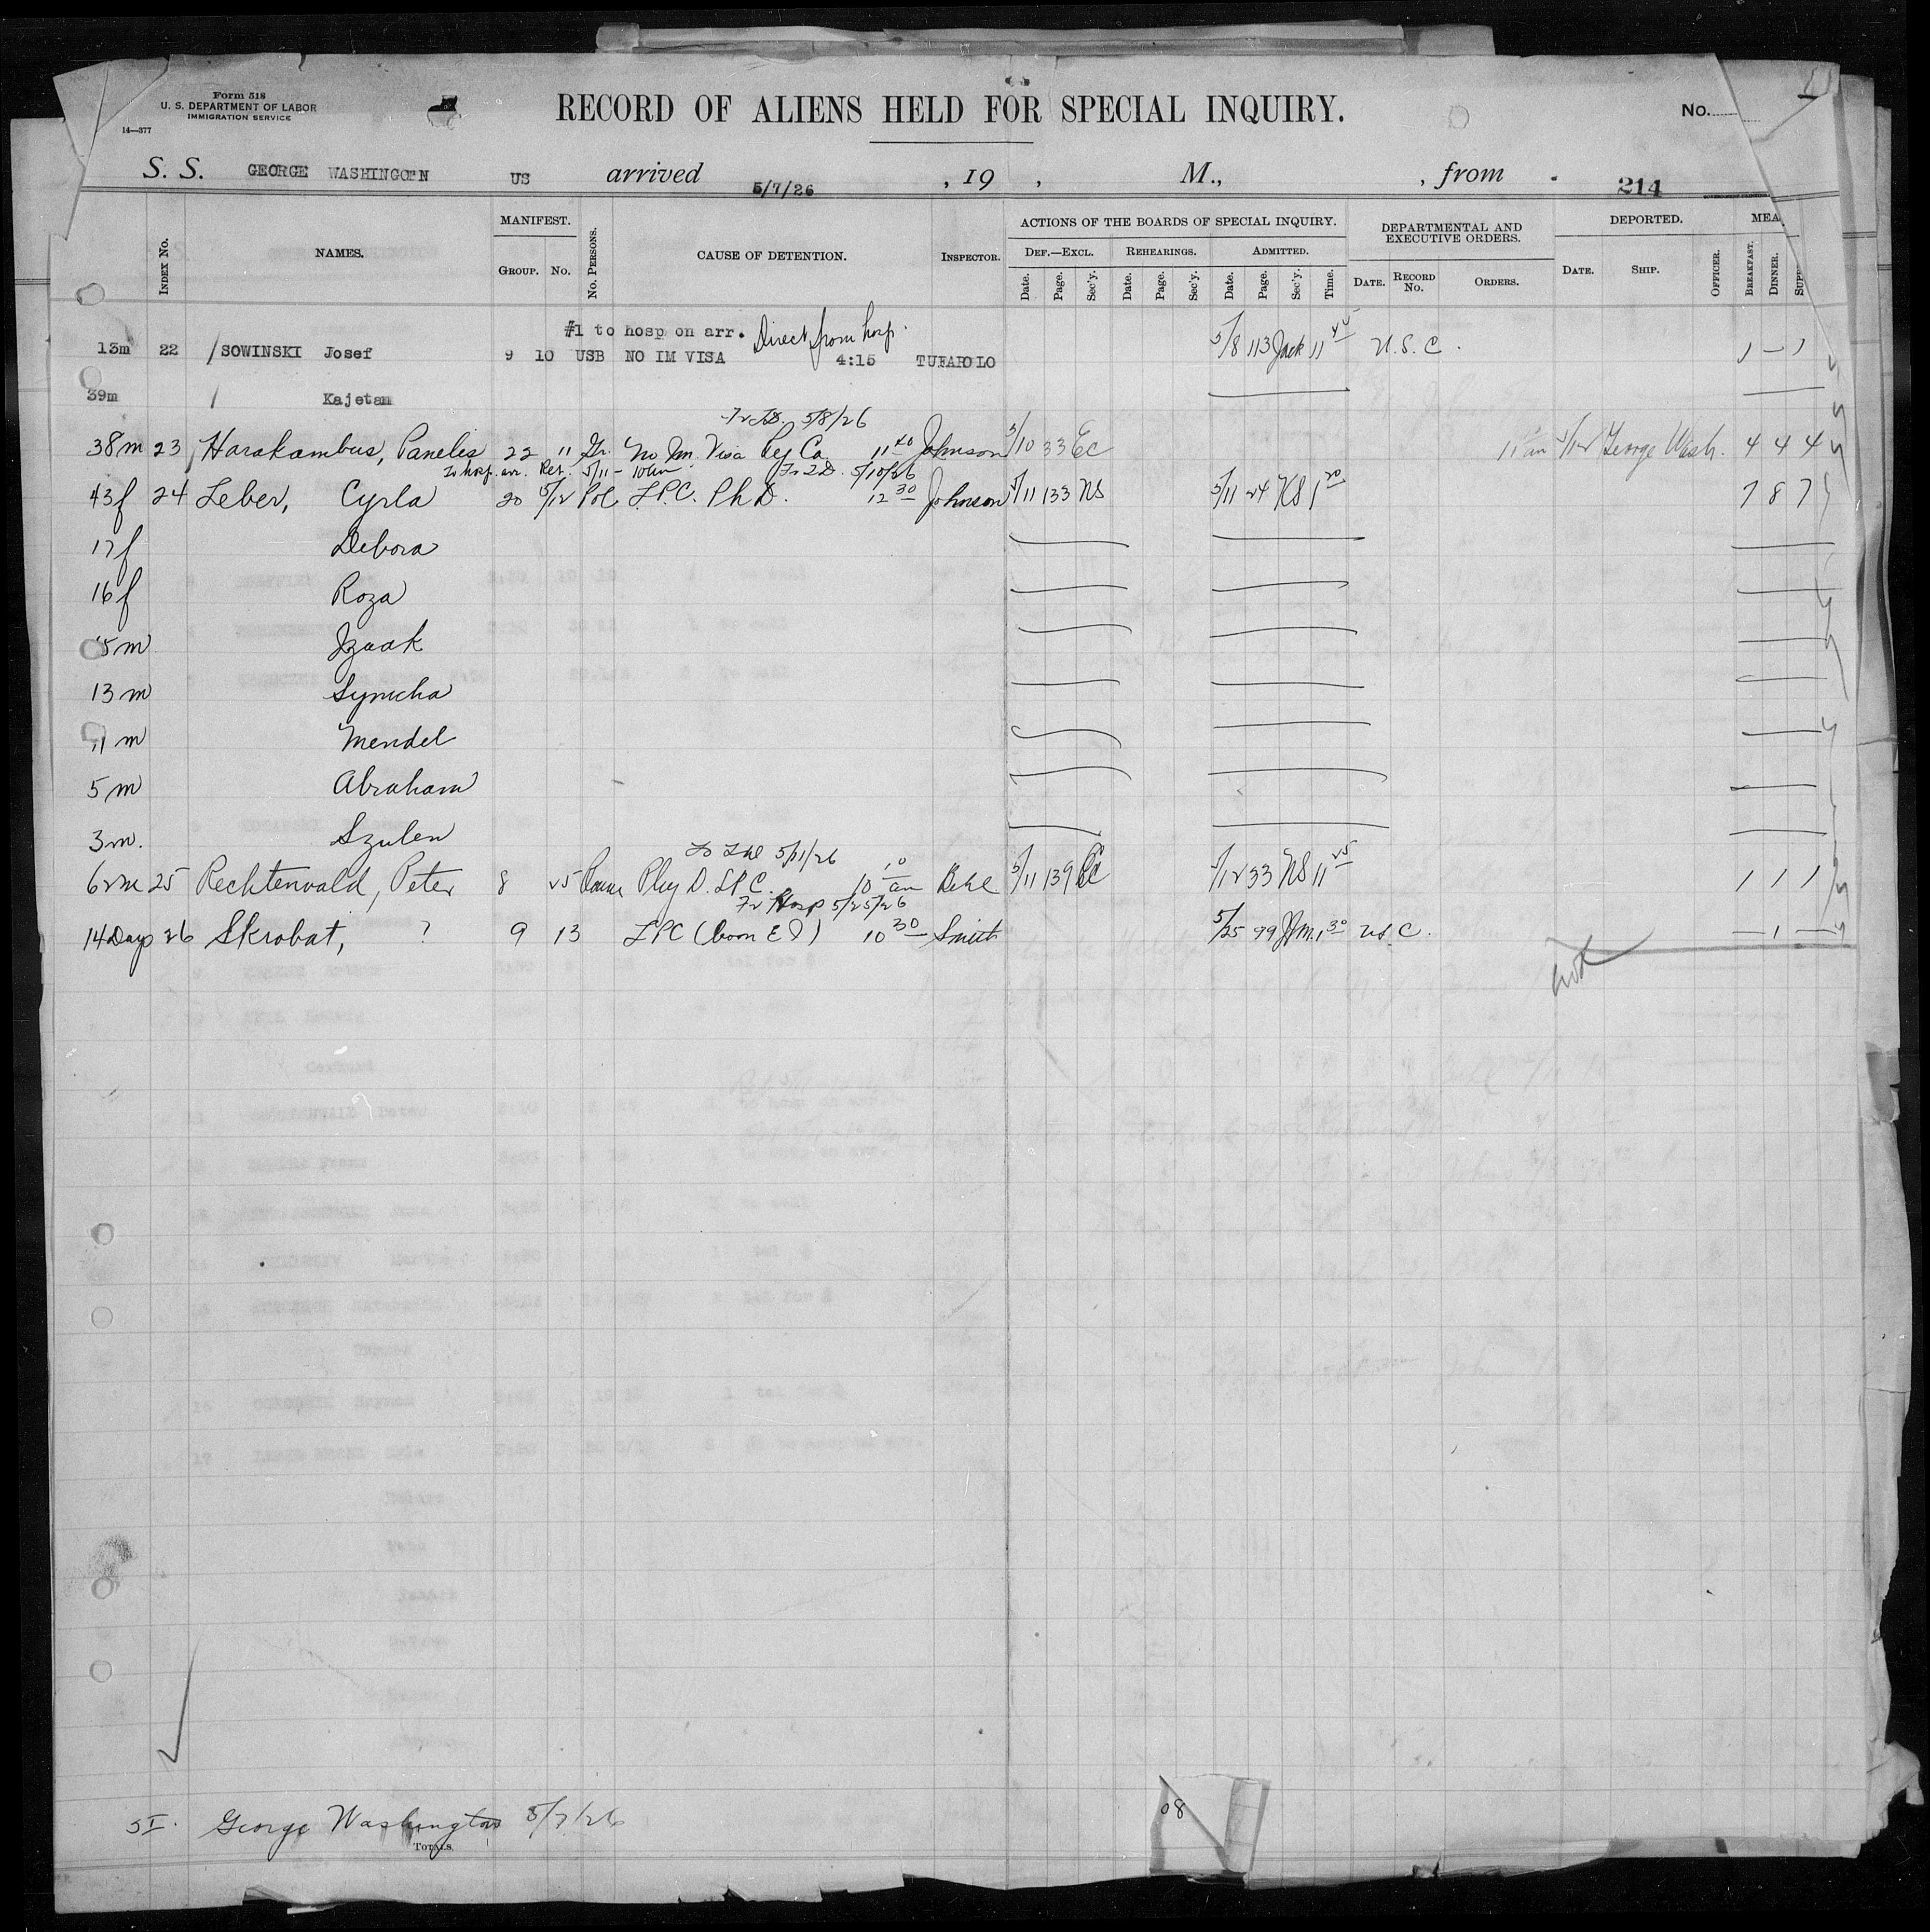 Form 518
U. S. DEPARTMENT OF LABOR
IMMIGRATION SERVICE
14—377
RECORD OF ALIENS HELD FOR SPECIAL INQUIRY.
No.
S. S. GEORGE WASHINGOTN US arrived 5/7/26 , 19 , M., , from 214
INDEX No. NAMES. MANIFEST. GROUP. No. No. PERSONS. CAUSE OF DETENTION. INSPECTOR. ACTIONS OF THE BOARDS OF SPECIAL INQUIRY. DEF.—EXCL. REHEARINGS. ADMITTED. DEPARTMENTAL AND EXECUTIVE ORDERS. DEPORTED. MEA
Date. Page. Sec'y. Date. Page. Sec'y. Date. Page. Sec'y. Time. DATE. RECORD No. ORDERS. DATE. SHIP. OFFICER. BREAKFAST. DINNER. SUPP
#1 to hosp on arr. Direct from hosp.
13m 22 / SOWINSKI Josef 9 10 USB NO IM VISA 4:15 TUFAROLO 5/8 113 Jack 11 45 U.S.C. 1 — 1
39m / Kajetan
5/8/26
38m 23 Harakambus, Panelis 22 11 Gr. No Im. Visa Rej Ca 11 40 Johnson 5/10 33 EC 11 am 5/12 George Wash. 4 4 4
To hosp. arr. Ret. 5/11 - 10am 5/10/26
43f 24 Leber, Cyrla 20 5/12 Pol L.P.C. Ph D. 12 30 Johnson 5/11 133 NS 5/11 24 NS 1 20 7 8 7
17f Debora
16f Roza
15m Izaak
13m Symcha
11m Mendel
5m Abraham
3m. Szulen
5/11/26
62m 25 Rechtenvald, Peter 8 25 Phy D. LPC. 10 10 am Behl 5/11 139 EC 5/12 33 NS 11 25 1 1 1
Hosp 5/25/26
14 Days 26 Skrobat, ? 9 13 LPC (born E I) 10 30 Smith 5/25 99 1 30 US.C. — 1 —
SI. George Washington 5/7/26
TOTALS.
08